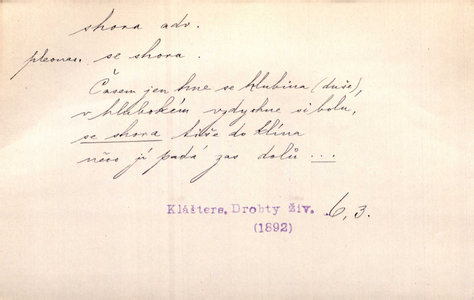 shora adv.
pleonas. se shora.
Časem jen hne se hlubina (duše),
v hlubokém vydychne si bolu,
se shora tiše do klína
něco jí padá zas dolů ...
Klášters. Drobty živ. 6, 3.
(1892)